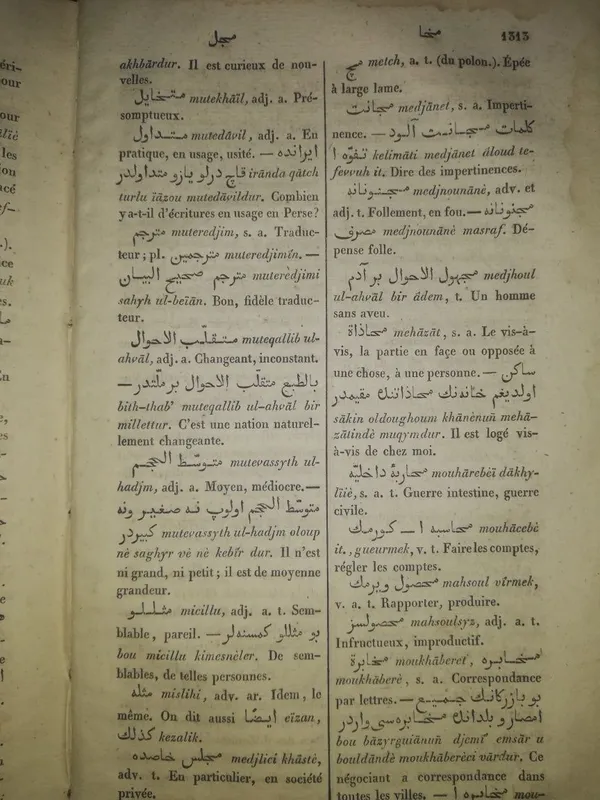 مجل
مخا
1313
akhbārdur. Il est curieux de nou-
velles.
متخايل mutekhāïl, adj. a. Pré-
somptueux.
متداول mutedāvil, adj. a. En
pratique, en usage, usité. — ايرانده
قاچ درلو يازو متداولدر irānda qātch
turlu ïāzou mutedāvildur. Combien
y a-t-il d'écritures en usage en Perse?
مترجم muteredjim, s. a. Traduc-
teur; pl. مترجمين muteredjimīn. —
مترجم صحيح البيان muterèdjimi
sahyh ul-beïān. Bon, fidèle traduc-
teur.
متقلب الاحوال muteqallib ul-
ahvāl, adj. a. Changeant, inconstant.
— بالطبع متقلب الاحوال بر ملتدر
bith-thab' muteqallib ul-ahvāl bir
millettur. C'est une nation naturel-
lement changeante.
متوسّط الحجم mutevassyth ul-
hadjm, adj. a. Moyen, médiocre. —
متوسّط الحجم اولوب نه صغير ونه
كبيردر mutevassyth ul-hadjm oloup
nè saghyr vè nè kebīr dur. Il n'est
ni grand, ni petit; il est de moyenne
grandeur.
مثللو micillu, adj. a. t. Sem-
blable, pareil. — بو مثللو كمسنه لر
bou micillu kimesnèler. De sem-
blables, de telles personnes.
مثله mislihi, adv. ar. Idem, le
même. On dit aussi ايضًا eïzan,
كذلك kezalik.
مجلس خاصده medjlici khāstè,
adv. t. En particulier, en société
privée.
مچ metch, a. t. (du polon.). Épée
à large lame.
مجانت medjānet, s. a. Imperti-
nence. — كلمات مجانت آلود
تفوّه ا kelimāti medjānet āloud te-
fevvuh it. Dire des impertinences.
مجنونانه medjnounānè, adv. et
adj. t. Follement, en fou. — مجنونانه
مصرف medjnounānè masraf. Dé-
pense folle.
مجهول الاحوال بر آدم medjhoul
ul-ahvāl bir ādem, t. Un homme
sans aveu.
محاذاة mehāzāt, s. a. Le vis-à-
vis, la partie en face ou opposée à
une chose, à une personne. — ساكن
اولديغم خانه نك محاذاتنك مقيمدر
sākin oldoughoum khānènuñ mehā-
zātindè muqymdur. Il est logé vis-
à-vis de chez moi.
محاربهٔ داخليّه mouhārebèï dākhy-
lïïè, s. a. t. Guerre intestine, guerre
civile.
محاسبه ا — كورمك mouhācebè
it., gueurmek, v. t. Faire les comptes,
régler les comptes.
محصول ويرمك mahsoul vīrmek,
v. a. t. Rapporter, produire.
محصولسز mahsoulsyz, adj. a. t.
Infructueux, improductif.
مخابره, مخابرة moukhāberet,
moukhāberè, s. a. Correspondance
par lettres. — بو بازركانك جميع
امصار و بلدانك مخابره سى واردر
bou bāzyrguiānuñ djemī' emsār u
bouldāndè moukhāberèci vārdur. Ce
négociant a correspondance dans
toutes les villes. — مخابره ا mou-